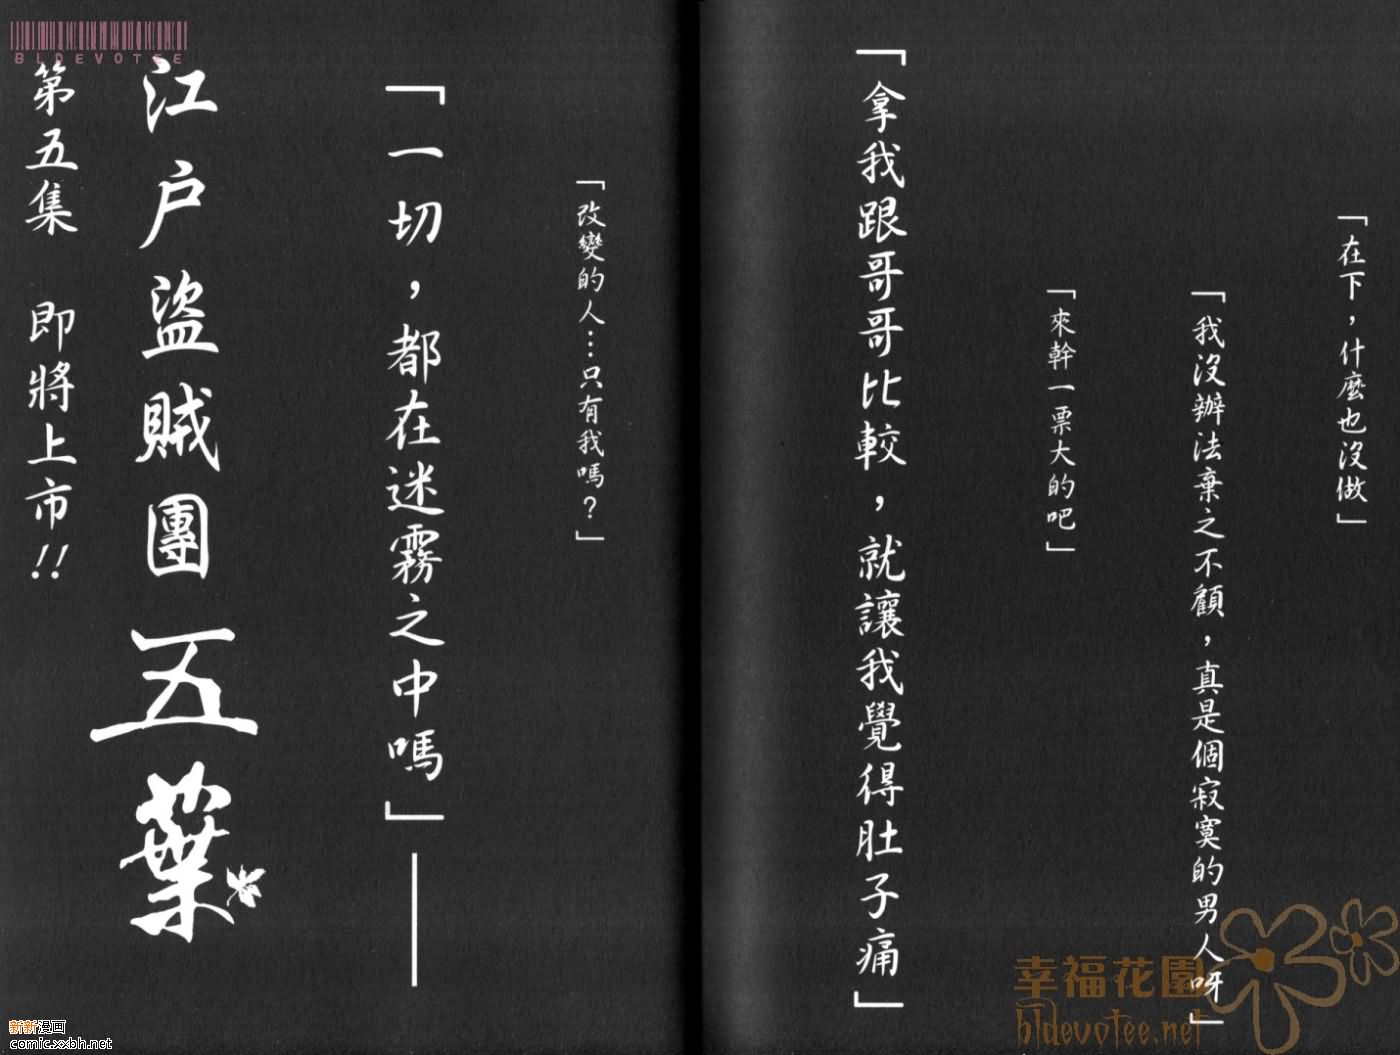 「在下，什麼也沒做」
「我沒辦法棄之不顧，真是個寂寞的男人呀」
「來幹一票大的吧」
「拿我跟哥哥比較，就讓我覺得肚子痛」
「改變的人…只有我嗎？」
「一切，都在迷霧之中嗎」——
江戶盜賊團五葉
第五集 即將上市!!
BLDEVOTEE
幸福花園
bldevotee.net
新新漫画
comic.xxbh.net